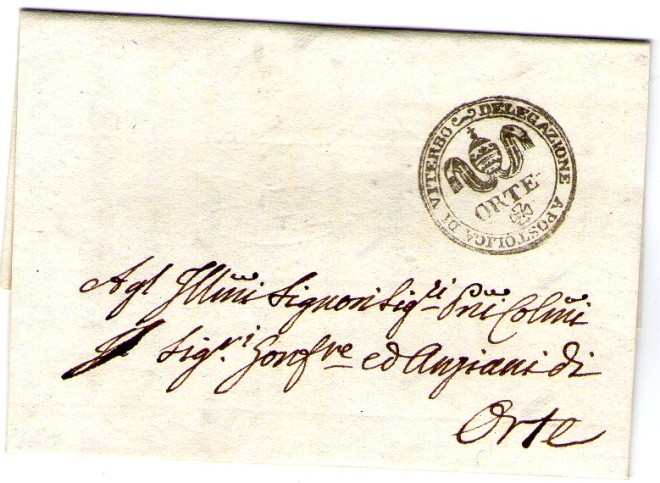 DELEGAZIONE APOSTOLICA DI VITERBO
ORTE
Agl' Illmi Signori Sigri Pni Colmi
Sigri Gonfre ed Anziani di
Orte